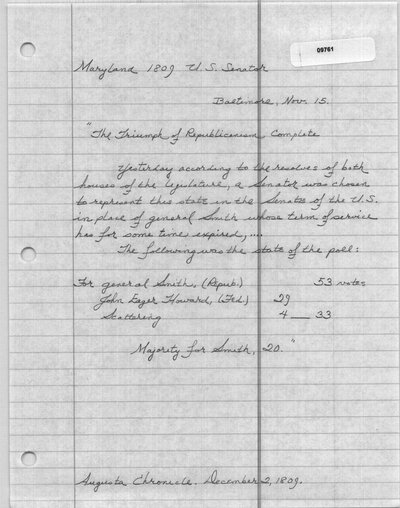 09761
Maryland 1809 U.S. Senator
Baltimore, Nov. 15.
"The Triumph of Republicanism Complete
Yesterday according to the resolves of both
houses of the legislature, a Senator was chosen
to represent this state in the Senate of the U.S.
in place of general Smith whose term of service
has for some time expired, ....
The following was the state of the poll:
For general Smith, (Repub.) 53 votes
John Eager Howard, (Fed.) 29
Scattering 4 — 33
Majority for Smith, 20."
Augusta Chronicle. December 2, 1809.